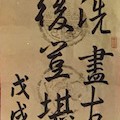 洗盡古
後豈堪
戊戌